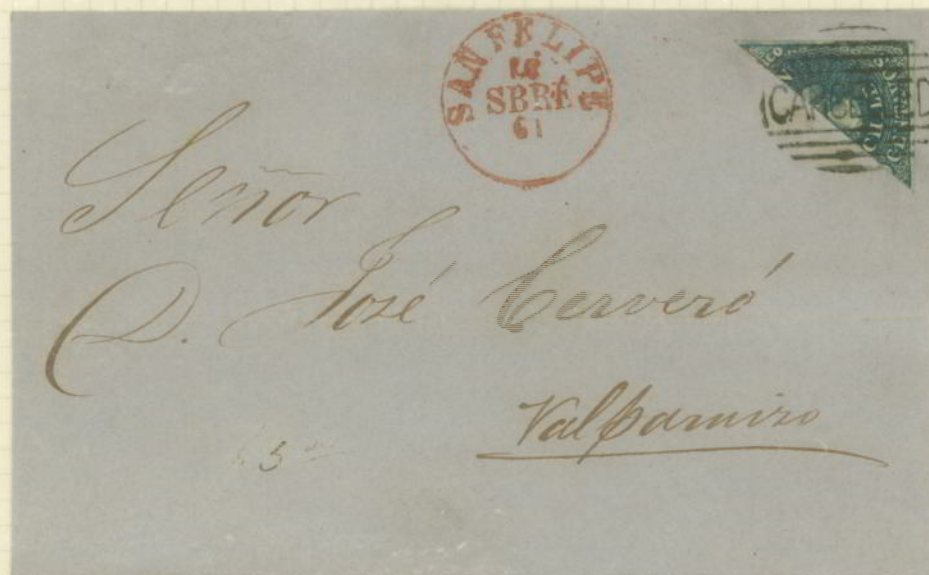 SAN FELIPE
SBRE
61
CANCELLED
Señor
D. José Cerveró
Valparaiso